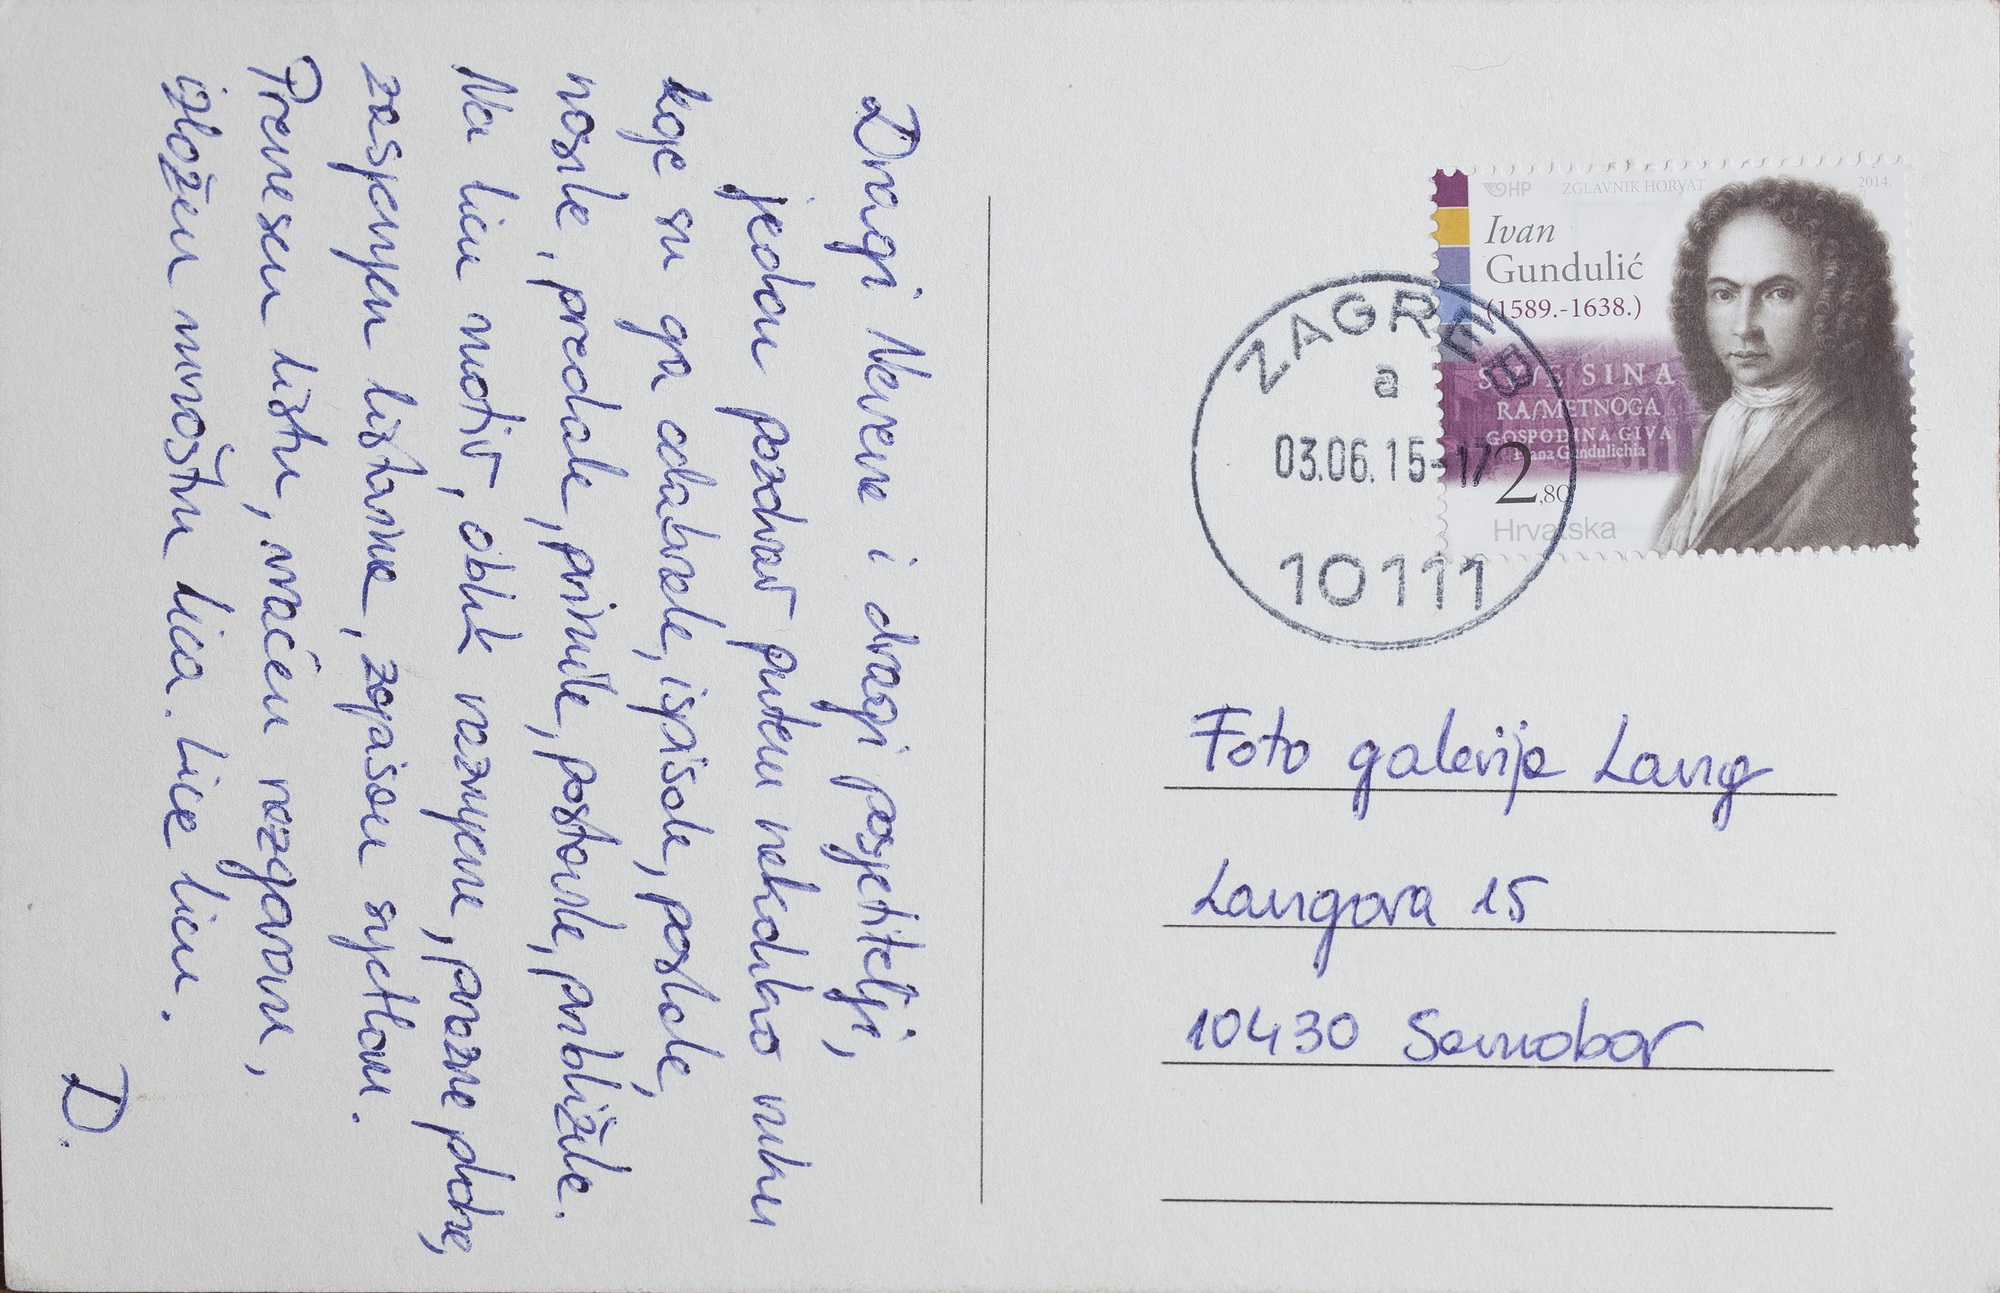 Dragi Neven i dragi posjetitelji,
jedan pozdrav putem nekoliko ruku
koje su ga odabrale, ispisale, poslale,
nosile, predale, primile, postavile, približile.
Na licu motiv, oblik razmjene, prazne plohe,
zasjenjen listovima, zapisan svjetlom.
Prenesen listu, vraćen razgovoru,
izložen mnoštvu lica. Lice licu.
D.
HP
ZGLAVNIK HORVAT
2014.
Ivan
Gundulić
(1589.-1638.)
SINA
RAZMETNOGA
GOSPODINA GIVA
Frana Gundulichia
2,80
Hrvatska
ZAGREB
a
03.06.15-17
10111
Foto galerija Lang
Langova 15
10430 Samobor